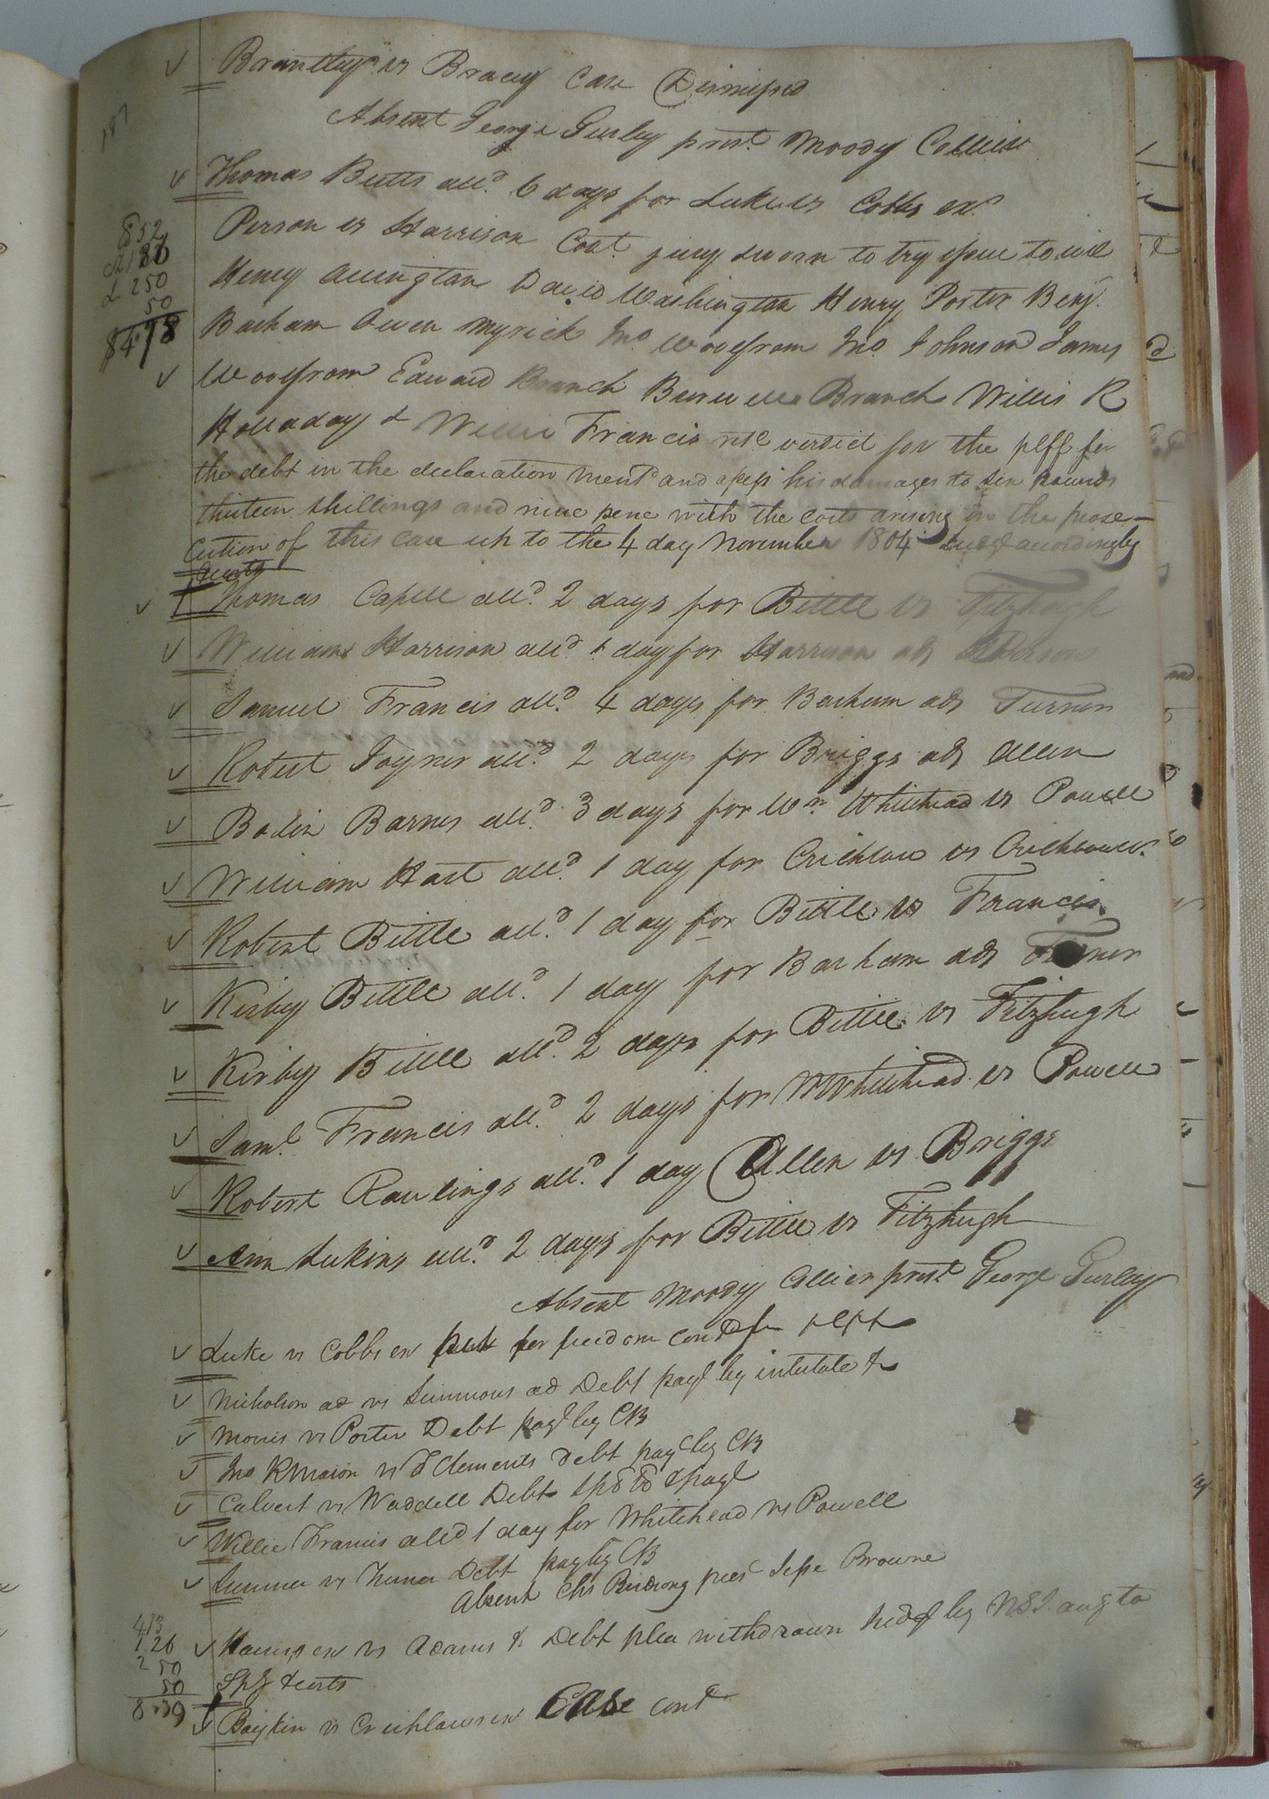 Brantley vs Bracey Case Dismissed
Absent George Gurley prest. Moody Collier
187
Thomas Betts alld. 6 days for Luke vs Cobbs exr.
Person vs Harrison Cont. jury sworn to try issue to wit
Henry Arrington David Washington Henry Porter Benj.
Barham Owen Myrick Jno. Woodfrom Jno. Johnson James
852
250
50
$4.78
Woodfrom Edward Branch Burwell Branch Willis R
Holladay & Willie Francis retd verdict for the plff for
the debt in the declaration mentd and assess his damages to six pounds
thirteen shillings and nine pence with the costs arising in the prose-
cution of this case up to the 4 day November 1804 Judgt accordingly
& costs
Thomas Capell alld. 2 days for Bittle vs Fitzhugh
William Harrison alld 6 day for Harrison ads Person
Samuel Francis alld. 4 days for Barham ads Turner
Robert Joyner alld. 2 days for Briggs ads Allen
Bolin Barnes alld. 3 days for Wm. Whitehead vs Powell
William Hart alld. 1 day for Crichlow vs Crichlow
Robert Bittle alld. 1 day for Bittle vs Francis
Kirby Bittle alld. 1 day for Barham ads Turner
Kirby Bittle alld. 2 days for Bittle vs Fitzhugh
Saml. Francis alld. 2 days for W Whitehead vs Powell
Robert Rawlings alld. 1 day Allen vs Briggs
Ann Lukins alld. 2 days for Bittle vs Fitzhugh
Absent Moody Collier prest George Gurley
Luke vs Cobbs exr for freedom contd for plff
Nicholson ad vs Simmons ad Debt payt by intestate &c
Morris vs Porter Debt payt by CB
Jno R Mason vs T Clements Debt payt by CB
Calvert vs Waddell Debt & payt
Willie Francis alld 1 day for Whitehead vs Powell
vs Turner Debt pay by CB
Absent Chs Birdsong prest Jesse Browne
413
1.26
2 50
50
8.39
exr vs Adams &c Debt plea withdrawn Judgt by NSI aug to
Spy & costs
Boykin vs Crichlows exr Case cont